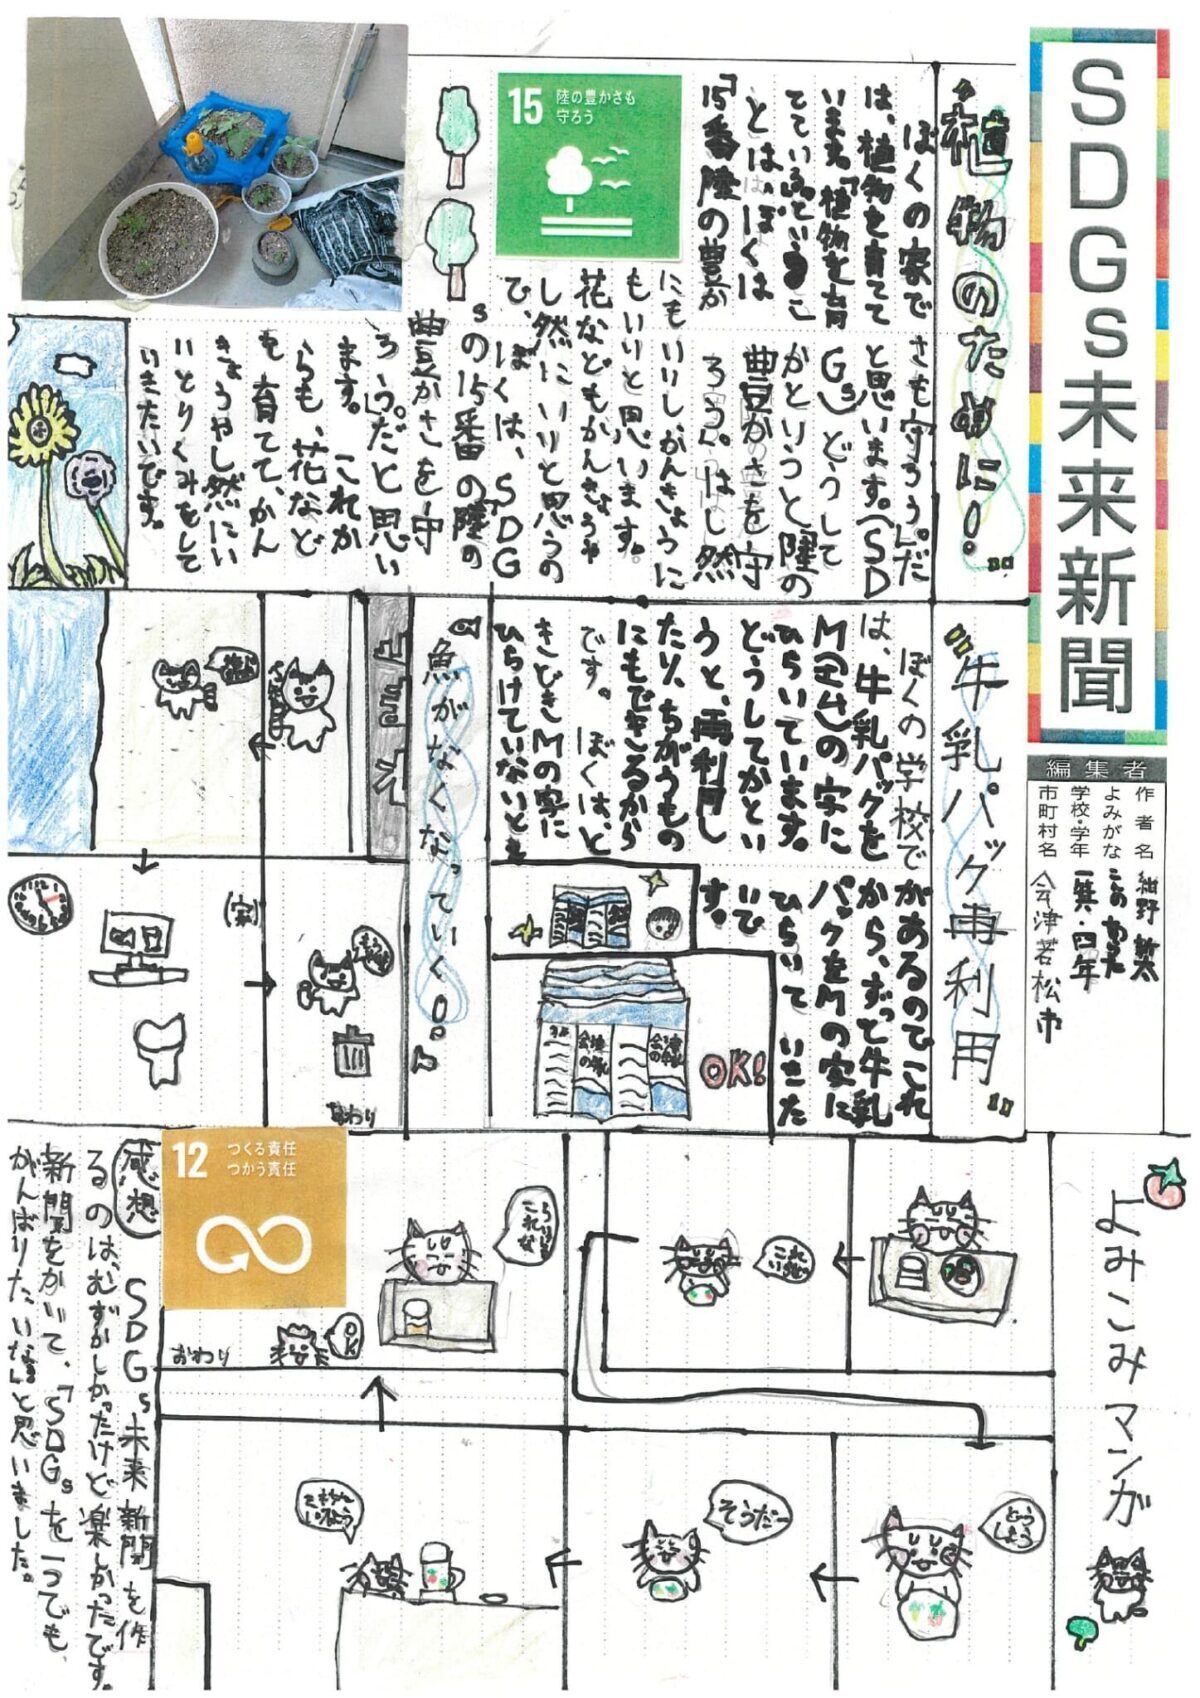 SDGs未来新聞
編集者
作者名 紺野
よみがな こんの
学校・学年 一箕・四年
市町村名 会津若松市
"植物のために!"
ぼくの家で
は、植物を育てて
います。「植物を育
てている。」というこ
とは、ぼくは
「15番陸の豊か
さも守ろう。」だ
と思います。(SD
Gs)どうして
かというと、「陸の
豊かさを守
ろう。」は、し然
にもいいし、かんきょうに
もいいと思います。
花などもかんきょうや
し然にいいと思うの
で、ぼ
くは、SDG
sの15番の「陸の
豊かさを守
ろう。」だと思い
ます。これか
らも、花など
を育てて、かん
きょうやし然にい
いとりくみをして
いきたいです。
15 陸の豊かさも
守ろう
"牛乳パック再利用"
ぼくの学校で
は、牛乳パックを
Mの字に
ひらいています。
どうしてかとい
うと、再利用し
たり、ちがうもの
にもできるから
です。ぼくは、と
きどきMの字に
ひらけていないとき
があるのでこれ
から、ずっと牛乳
パックをMの字に
ひらいていきた
いで
す。
OK!
魚がなくなっていく。
(家)
おわり
よみこみマンガ
どう
しよう
そうだー
OK
おわり
12 つくる責任
つかう責任
感想
SDGs未来新聞を作
るのは、むずかしかったけど楽しかったです。
新聞をかいて、「SDGsを一つでも、
がんばりたいな。」と思いました。